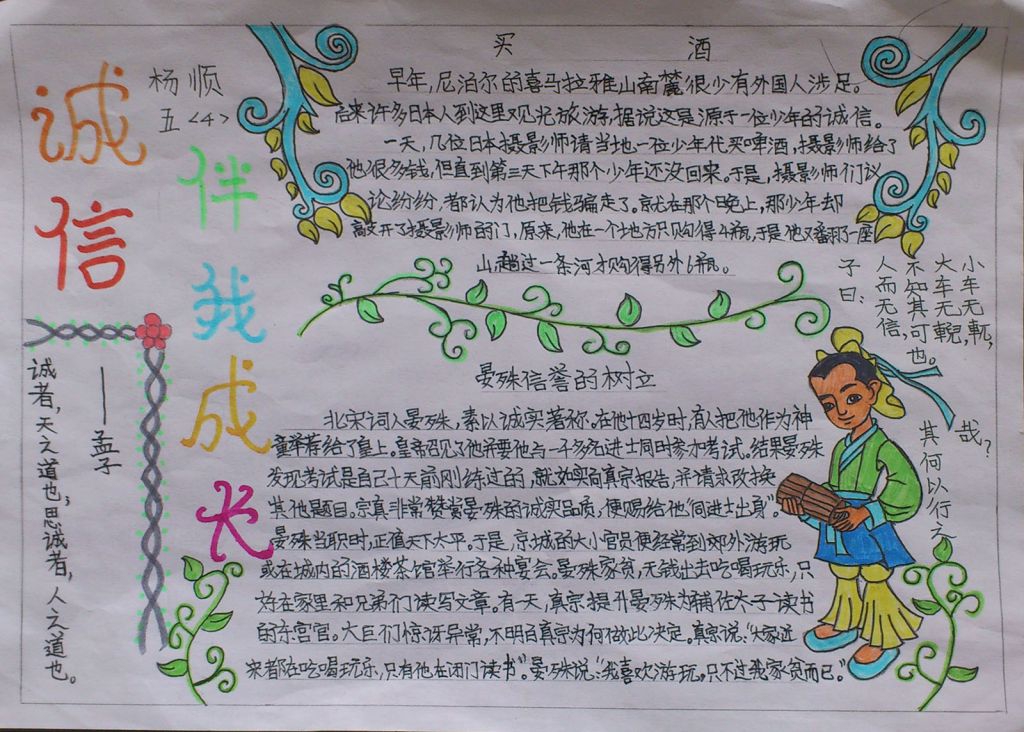 诚信
伴我成长
杨顺
五<4>
买酒
早年,尼泊尔的喜马拉雅山南麓很少有外国人涉足。
后来许多日本人到这里观光旅游,据说这是源于一位少年的诚信。
一天,几位日本摄影师请当地一位少年代买啤酒,摄影师给了
他很多钱,但直到第三天下午那个少年还没回来。于是,摄影师们议
论纷纷,都认为他把钱骗走了。就在那个晚上,那少年却
敲开了摄影师的门,原来,他在一个地方只购得4瓶,于是他又翻了一座
山,趟过一条河才购得另外6瓶。
子曰:
人而无信,
不知其可也。
大车无輗,
小车无軏,
其何以行之
哉?
诚者,天之道也;思诚者,人之道也。
——孟子
晏殊信誉的树立
北宋词人晏殊,素以诚实著称。在他十四岁时,有人把他作为神
童举荐给了皇上。皇帝召见了他并要他与一千多名进士同时参加考试。结果晏殊
发现考试是自己十天前刚练过的,就如实向真宗报告,并请求改换
其他题目。宗真非常赞赏晏殊的诚实品质,便赐给他“同进士出身”。
晏殊当职时,正值天下太平。于是,京城的大小官员便经常到郊外游玩
或在城内的酒楼茶馆举行各种宴会。晏殊家贫,无钱出去吃喝玩乐,只
好在家里和兄弟们读写文章。有一天,真宗提升晏殊为辅佐太子读书
的东宫官。大臣们惊讶异常,不明白真宗为何做此决定。真宗说:“大家近
来都在吃喝玩乐,只有他在闭门读书”。晏殊说:“我喜欢游玩,只不过我家贫而已”。